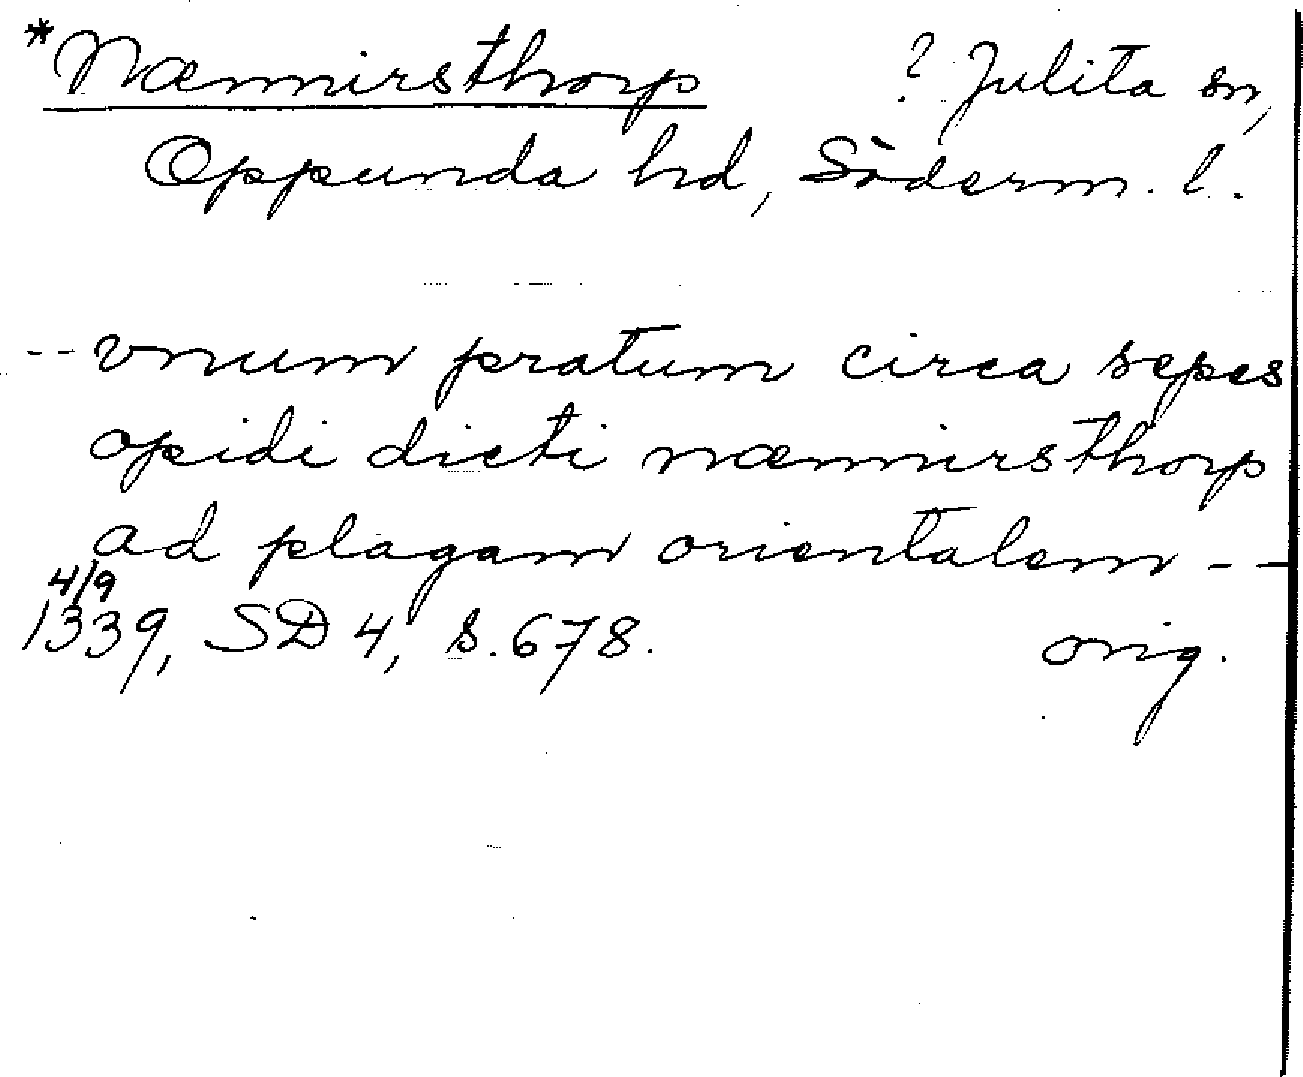 *Næmnirsthorp ? Julita sn,
Oppunda hd, Söderm. l.
-- vnum pratum circa sepes
opidi dicti næmnirsthorp
ad plagam orientalem --
4/9
1339, SD 4, s. 678. orig.